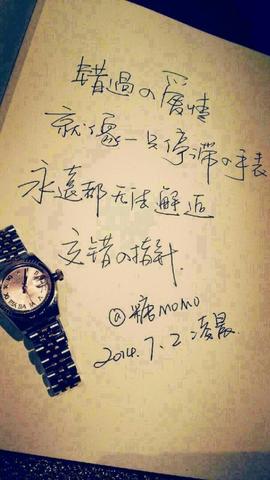 錯過の愛情
就像一只停滞の手表
永遠都无法解逅
交错の指針.
@糖momo
2014.7.2 凌晨.